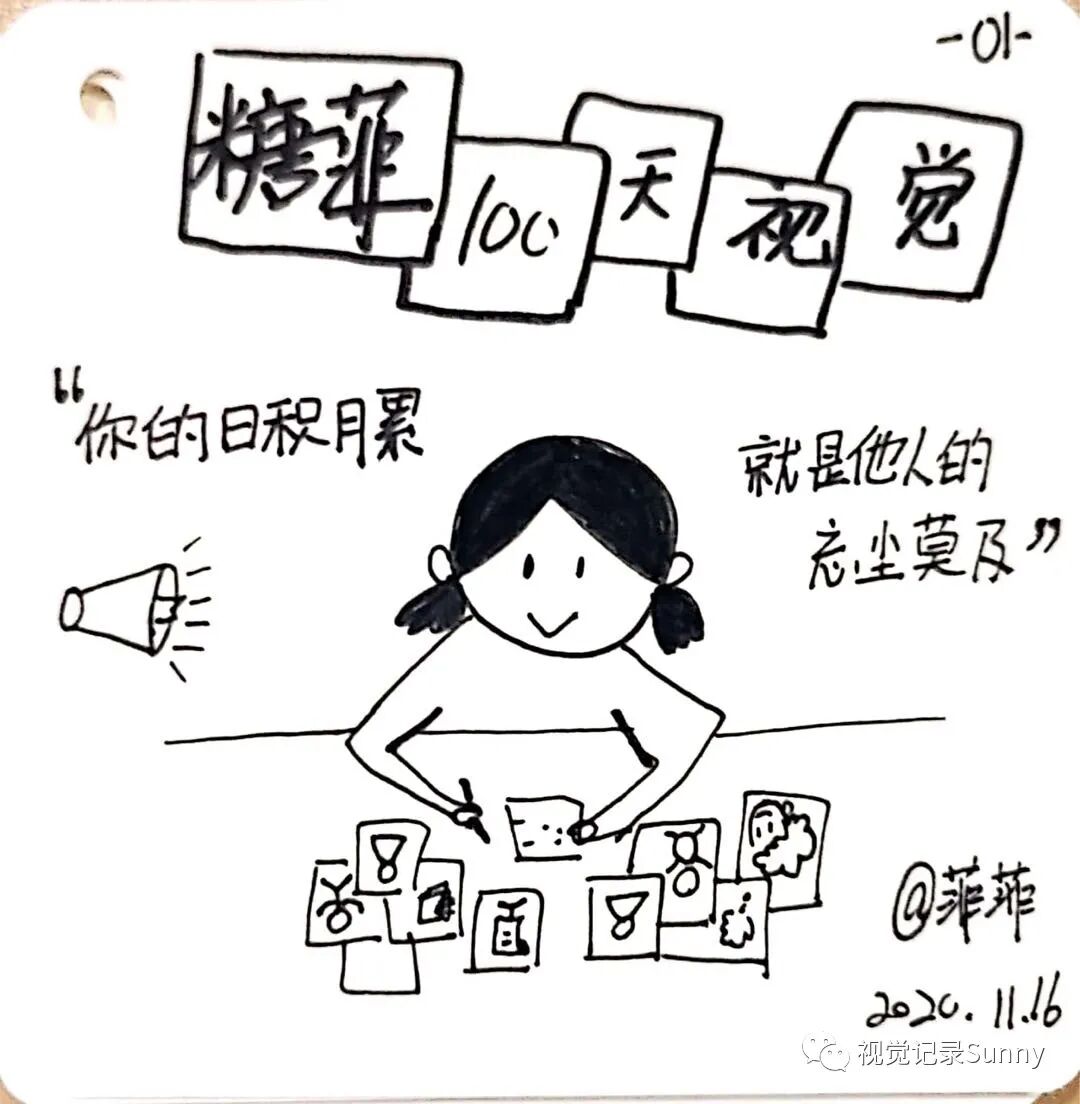 -01-
糖菲100天视觉
“你的日积月累
就是他人的
忘尘莫及”
@菲菲
2020.11.16
视觉记录Sunny